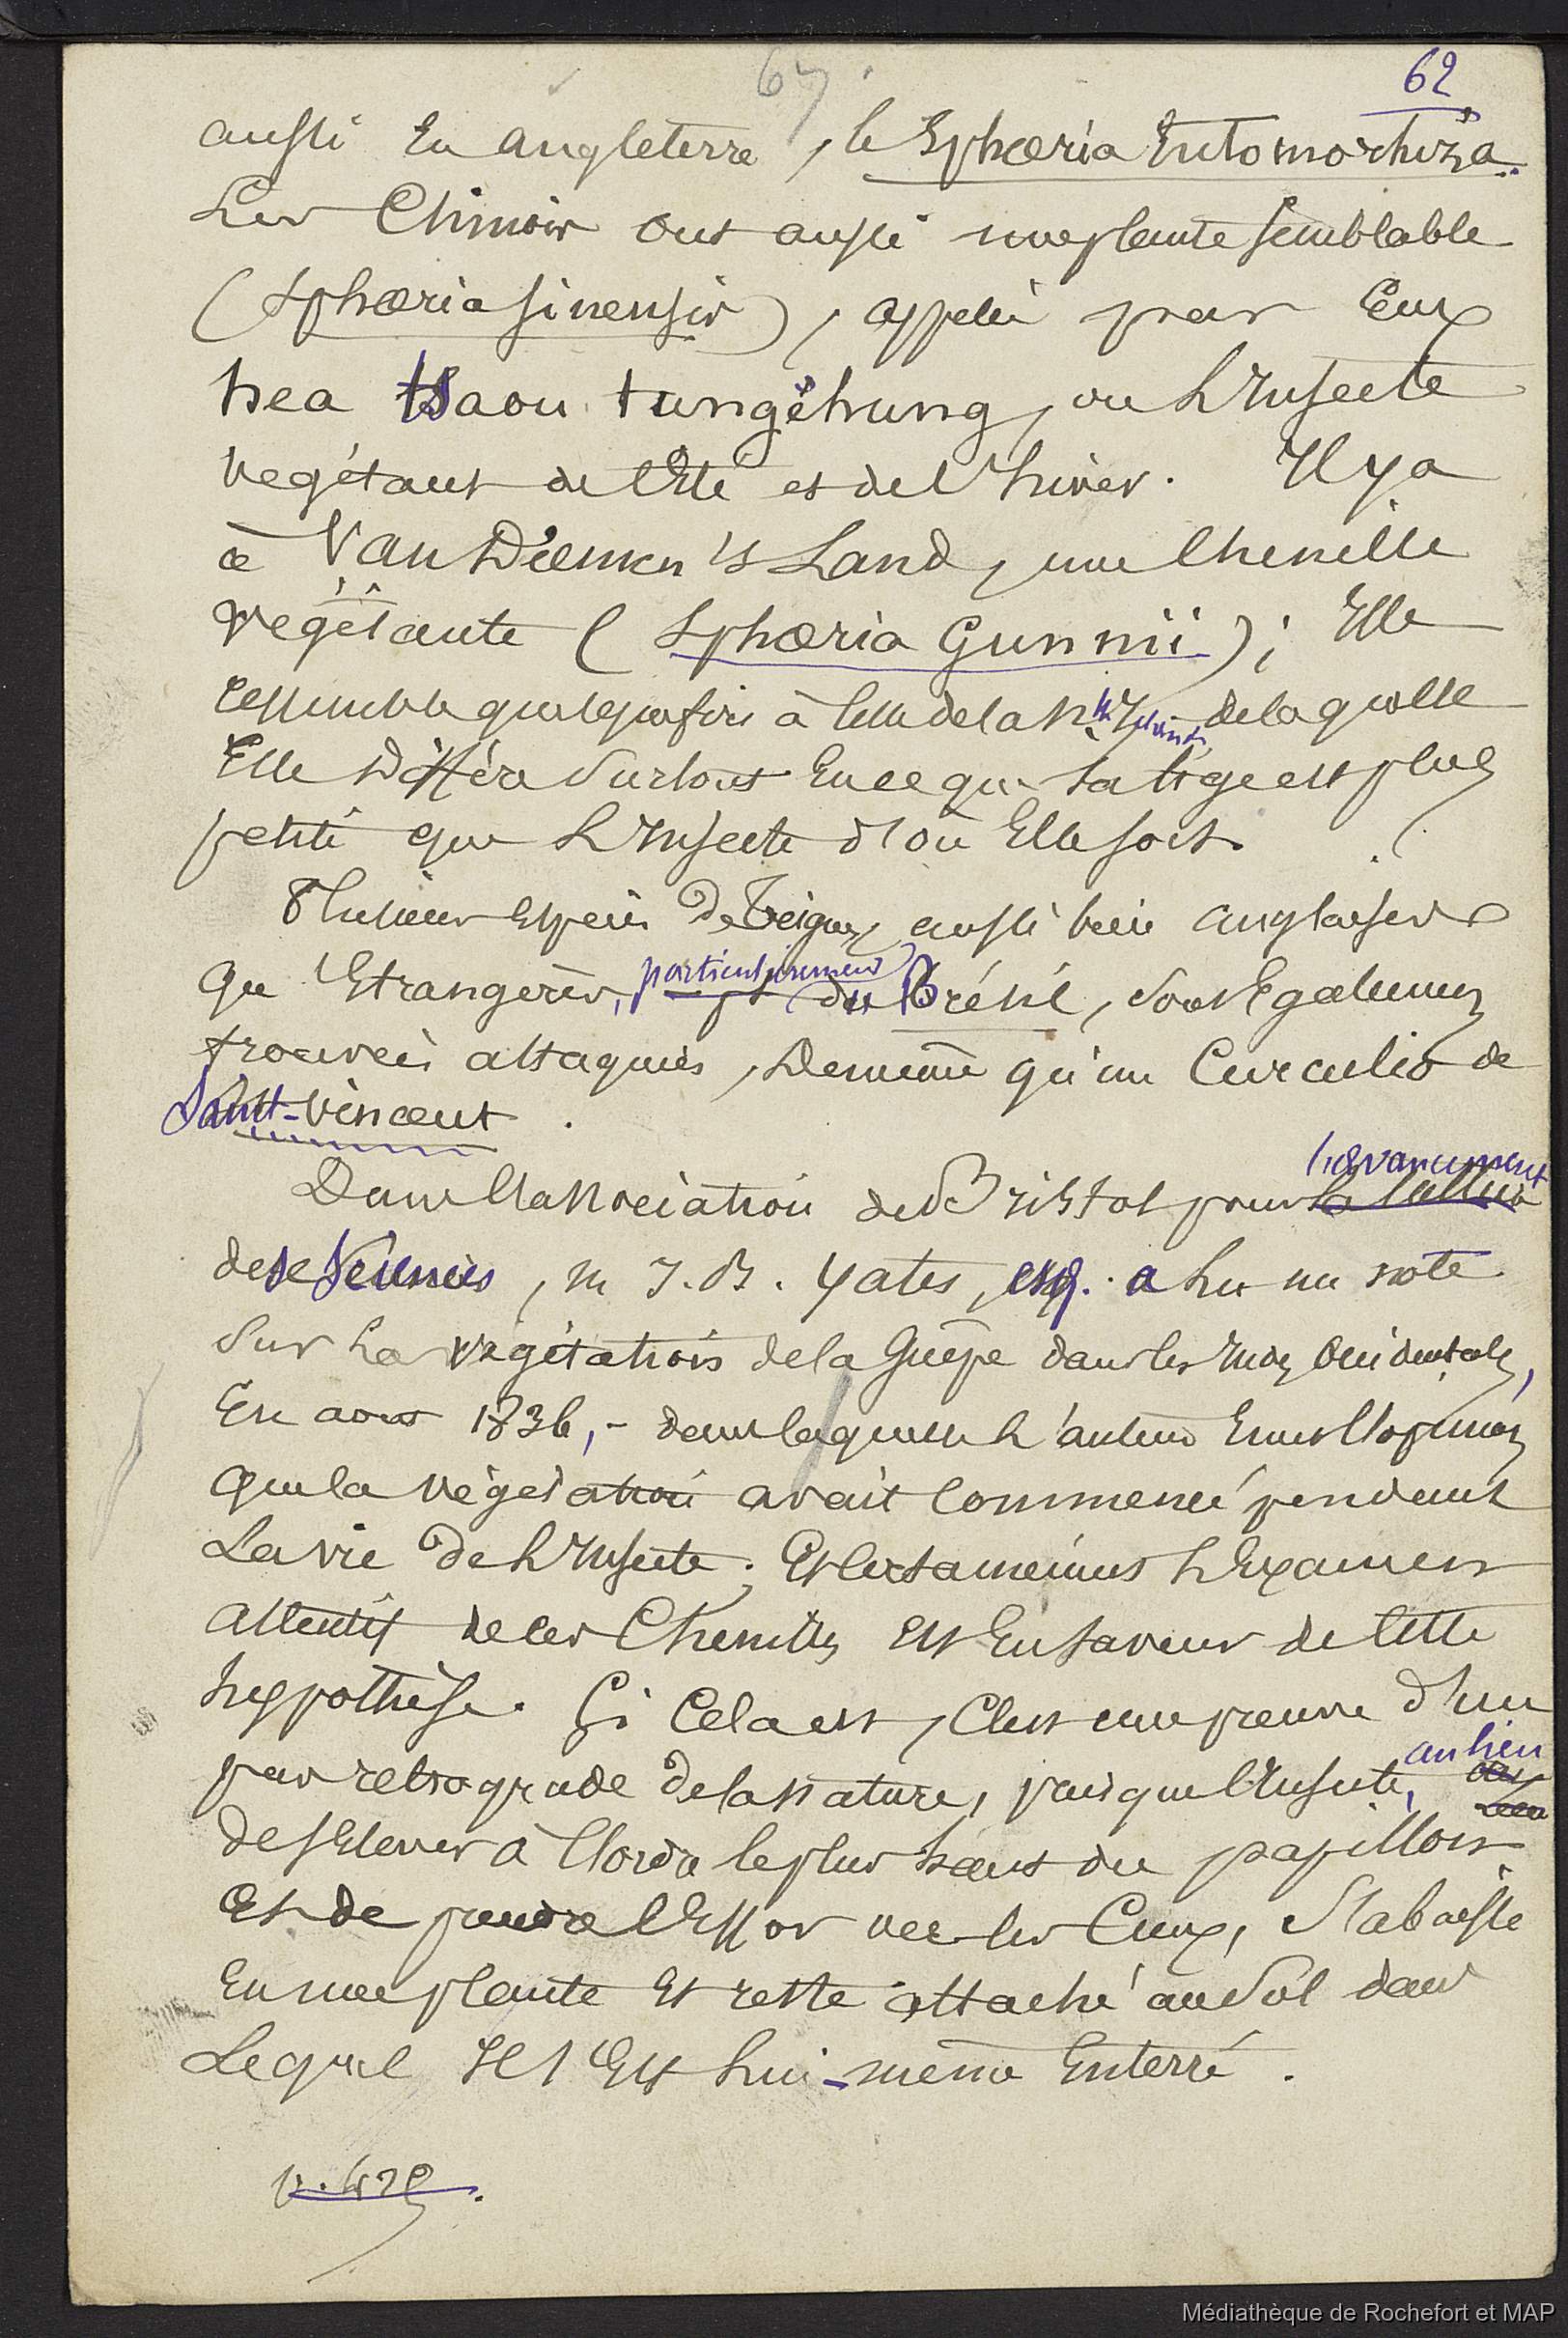 67
62
aussi en angleterre, le Sphœria Entomorhiza.
Les Chinois ont aussi une plante semblable
(Sphœria sinensis), appelée par Eux
hea tsaou tungchung, ou L'Insecte
végétant de l'Eté et de l'hiver. Il y a
à Van Diemen's Land, une Chenille
végétante (Sphœria Gunnii); Elle
ressemble quelquefois à celle de la Nlle Zélande, de laquelle
Elle Diffère surtout En ce que sa tige est plus
petite que L'Insecte d'où Elle sort.
Plusieurs Espèces De Teignes, aussi bien anglaises
qu'Etrangères, particulièrement du Brésil, sont Egalement
trouvées attaquées, De même qu'un Curculio de
Saint-Vincent.
Dans l'association de Bristol pour l'avancement
des Sciences, M J. B. Yates, esq. a lu une note
sur la végétation de la Guêpe dans les Indes Occidentales,
En aout 1836, - dans laquelle l'auteur Emet l'opinion
que la végétation avait commencé pendant
La vie De L'Insecte; Et certainement L'Examen
attentif de ces Chenilles Est En faveur de cette
hypothèse. Si Cela est, C'est une preuve d'un
pas retrograde De la Nature, puisque l'Insecte, au lieu
de s'Elever à l'ordre le plus haut du papillon
Et de prendre l'Essor vers les Cieux, s'abaisse
En une plante Et reste attaché au sol dans
Lequel Il Est Lui-même Enterré.
Médiathèque de Rochefort et MAP